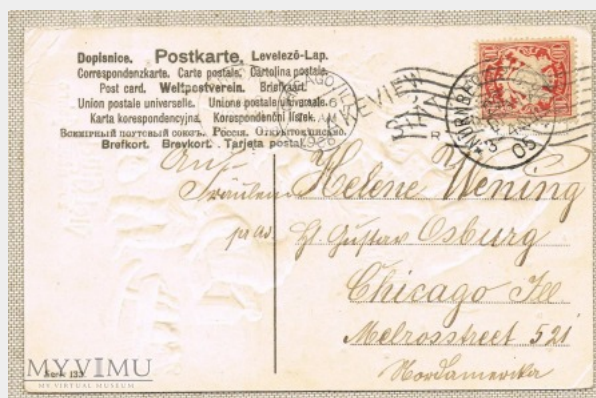 Dopisnice. Postkarte. Levelező-Lap.
Correspondenzkarte. Carte postale. Cartolina postale.
Post card. Weltpostverein. Briefkaart.
Union postale universelle. Unione postale universale.
Karta korespondencyjna. Korespondenční lístek.
Всемірный почтовый союзъ. Россія. Открытое письмо.
Brefkort. Brevkort. Tarjeta postal.
CHICAGO, ILL.
LAKEVIEW
NÜRNBERG
05
10
An
Fräulein Helene Wening
Gustav Osburg
Chicago Ill
Melrosstreet 521
Nordamerika
MYVIMU
MY VIRTUAL MUSEUM